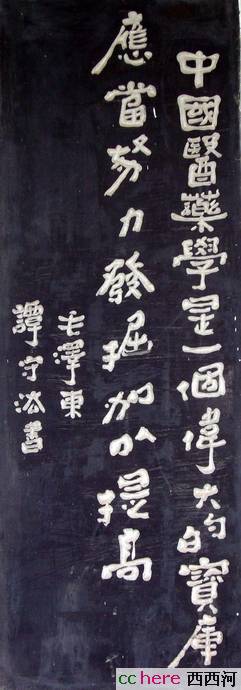 中國醫藥學是一個偉大的寶庫
應當努力發掘加以提高
毛澤東
譚守法書
cchere 西西河